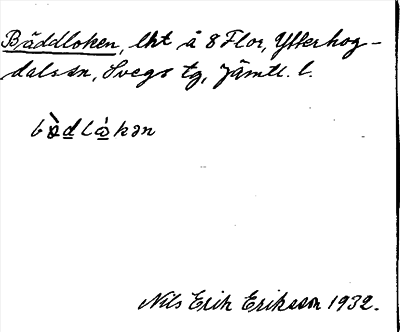 Bäddloken, lht å 8 Flor, Ytterhog-
dals sn, Svegs tg, Jämtl. l.
bæ̀dlȧkən
Nils Erik Eriksson 1932.